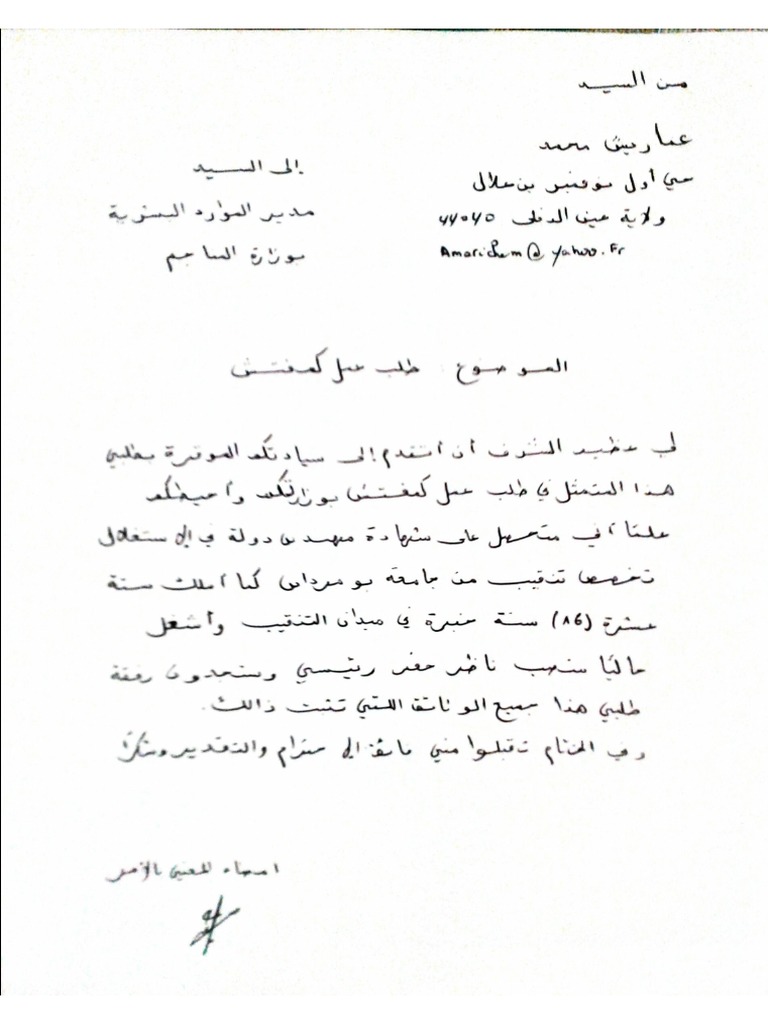 من السيد
عماريش محمد
حي أول نوفمبر بن علال
ولاية عين الدفلى 44040
Amarichem@yahoo.Fr
إلى السيد
مدير الموارد البشرية
بوزارة المناجم
الموضوع: طلب عمل كمفتش
لي عظيم الشرف أن أتقدم إلى سيادتكم الموقرة بطلبي
هذا المتمثل في طلب عمل كمفتش بوزارتكم وأحيطكم
علما أني متحصل على شهادة مهندس دولة في الإستغلال
تخصص تنقيب من جامعة بومرداس كما أملك ستة
عشرة (16) سنة خبرة في ميدان التنقيب وأشغل
حاليا منصب ناظر حفر رئيسي وستجدون رفقة
طلبي هذا جميع الوثائق اللتي تثبت ذالك.
وفي الختام تقبلوا مني فائق الإحترام والتقدير وشكرًا
امضاء المعني بالأمر